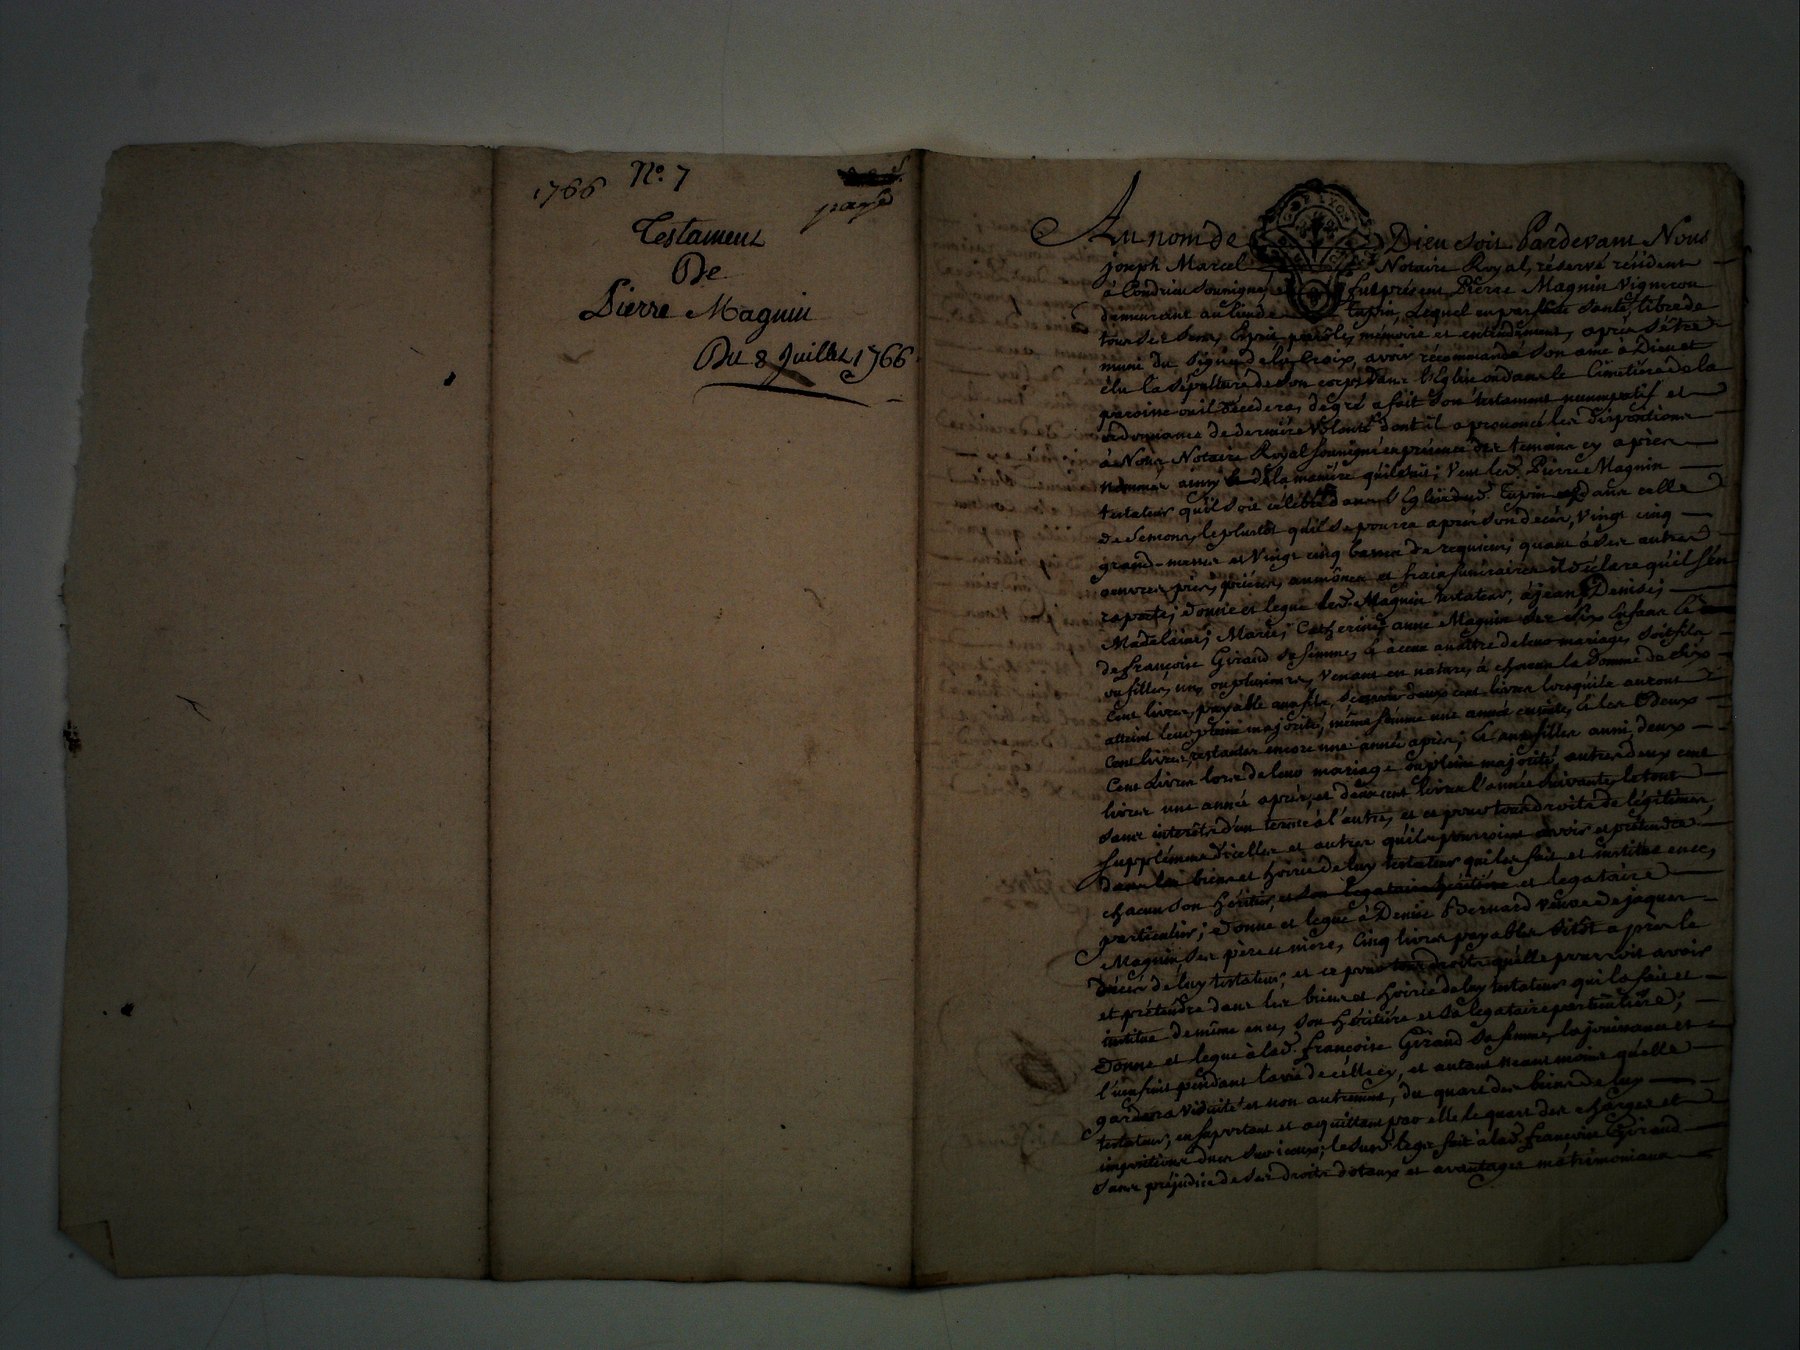 1766 No. 7
pagé
Testament
De
Pierre Magnin
Du 8 Juillet 1766
Au nom de Dieu soit. Pardevant Nous
joseph Marcel Notaire Royal réservé résident
à Condrieu soussigné, fut présent Pierre Magnin Vigneron
demeurant au lieu de Tupin, Lequel en parfaite santé, libre de
tous ses sens, Esprit, parôle, mémoire et entendement, après s'être
muni du Signe de la Croix, avoir récommandé son ame à Dieu et
élu la sépulture de son corps dans l'Eglise ou dans le Cimetière de la
paroisse ou il décedera, de gré a fait son testament nuncupatif et
ordonnance de derniére Volonté dont il a prononcé les dispositions
à Nous Notaire Royal soussigné en présence des temoins cy après
nommés ainsy de la maniére qu'il suit; Veut led. Pierre Magnin
testateur qu'il soit célébré dans l'Eglise dud. Tupin dans celle
de Semons, le plustôt qu'il se pourra après son decès, Vingt cinq
grand-messes et Vingt cinq basses de requiem; quant à ses autres
oeuvres pies, priéres, aumônes et frais funéraires il déclare qu'il s'en
raporte; donne et legue led. Magnin testateur, à jean, Denis,
Madelaine, Marie, Catherine, anne Magnin ses six Enfans
de françoise Girand sa femme, & à ceux à naître de leur mariage, soit fils
ou filles, un, ou plusieurs, Venans en nature, à chacun la somme de six
Cent livres, payable aux fils, deux cent livres lorsqu'ils auront
atteint leur pleine majorité, même somme une année ensuite, & les deux
Cent livres restantes encore une année après; & aux filles aussi deux
Cent Livres lors de leur mariage ou pleine majorité, autres deux cent
livres une année après, et deux cent livres l'année suivante, le tout
sans interêts d'un terme à l'autre, et ce pour tous droits de légitimes,
supplémens d'icelles et autres qu'ils pourroient avoir et prétendre
dans les biens et Hoirie de luy testateur qui les fait et institue en ce,
chacun son Héritier et legataire
particulier; donne et legue à Denise Bernard veuve de jaques
Magnin ses père et mére, Cinq livres payables sitôt après le
décès de luy testateur, et ce pour tous droits qu'elle pourroit avoir
et prétendre dans les biens et Hoirie de luy testateur qui la fait et
institue de même en ce, son Héritiére et sa legataire particuliére;
donne et legue à lad. françoise Girand sa femme, la jouissance et
l'usufruit pendant la vie de cellecy, et autant neantmoins qu'elle
gardera viduité et non autrement, du quart des biens de luy
testateur, en suportant et acquittant par elle le quart des charges et
impositions dues sur iceux; le susd. legs fait à lad. françoise Girand
sans préjudice de ses droits dotaux et avantages matrimoniaux